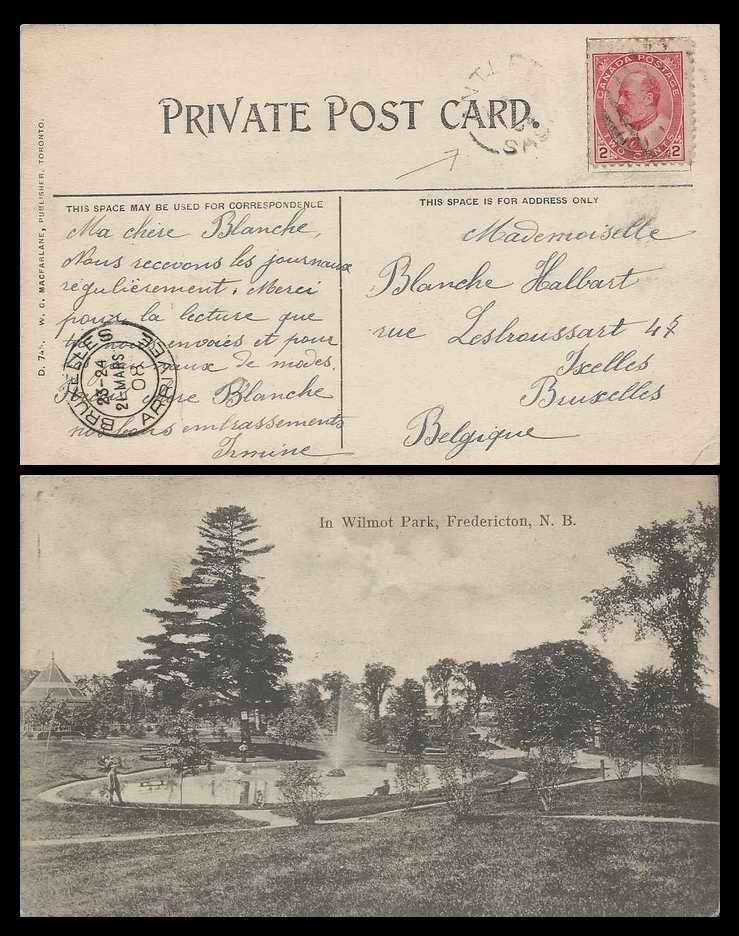 PRIVATE POST CARD.
CANADA POSTAGE
2 TWO CENTS 2
SAS
D. 74. W. G. MACFARLANE, PUBLISHER, TORONTO.
THIS SPACE MAY BE USED FOR CORRESPONDENCE
Ma chère Blanche,
Nous recevons les journaux
régulièrement. Merci
pour la lecture que
envoiés et pour
de modes.
Blanche
embrassements
Irmine
BRUXELLES
23-24
MARS
08
ARRIVÉE
THIS SPACE IS FOR ADDRESS ONLY
Mademoiselle
Blanche Halbart
rue Lesbroussart
Ixelles
Bruxelles
Belgique
In Wilmot Park, Fredericton, N. B.